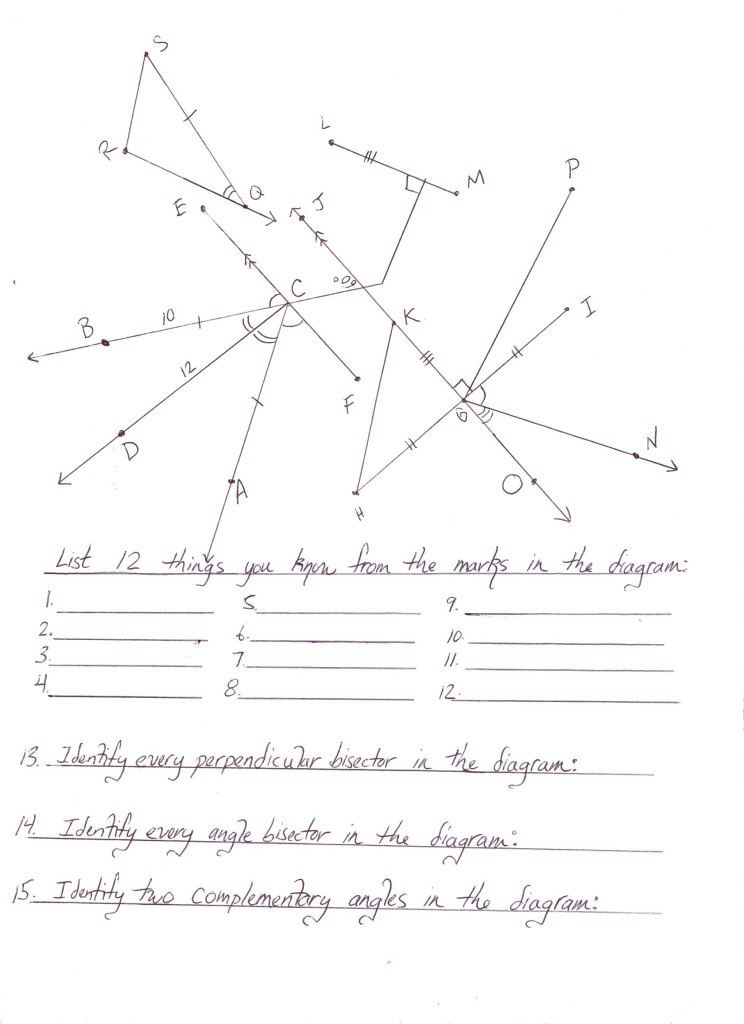 S
L
R
M
P
Q
E
J
C
I
10
B
K
12
F
G
D
N
A
O
H
List 12 things you know from the marks in the diagram:
1. 5. 9.
2. 6. 10.
3. 7. 11.
4. 8. 12.
13. Identify every perpendicular bisector in the diagram:
14. Identify every angle bisector in the diagram:
15. Identify two complementary angles in the diagram: